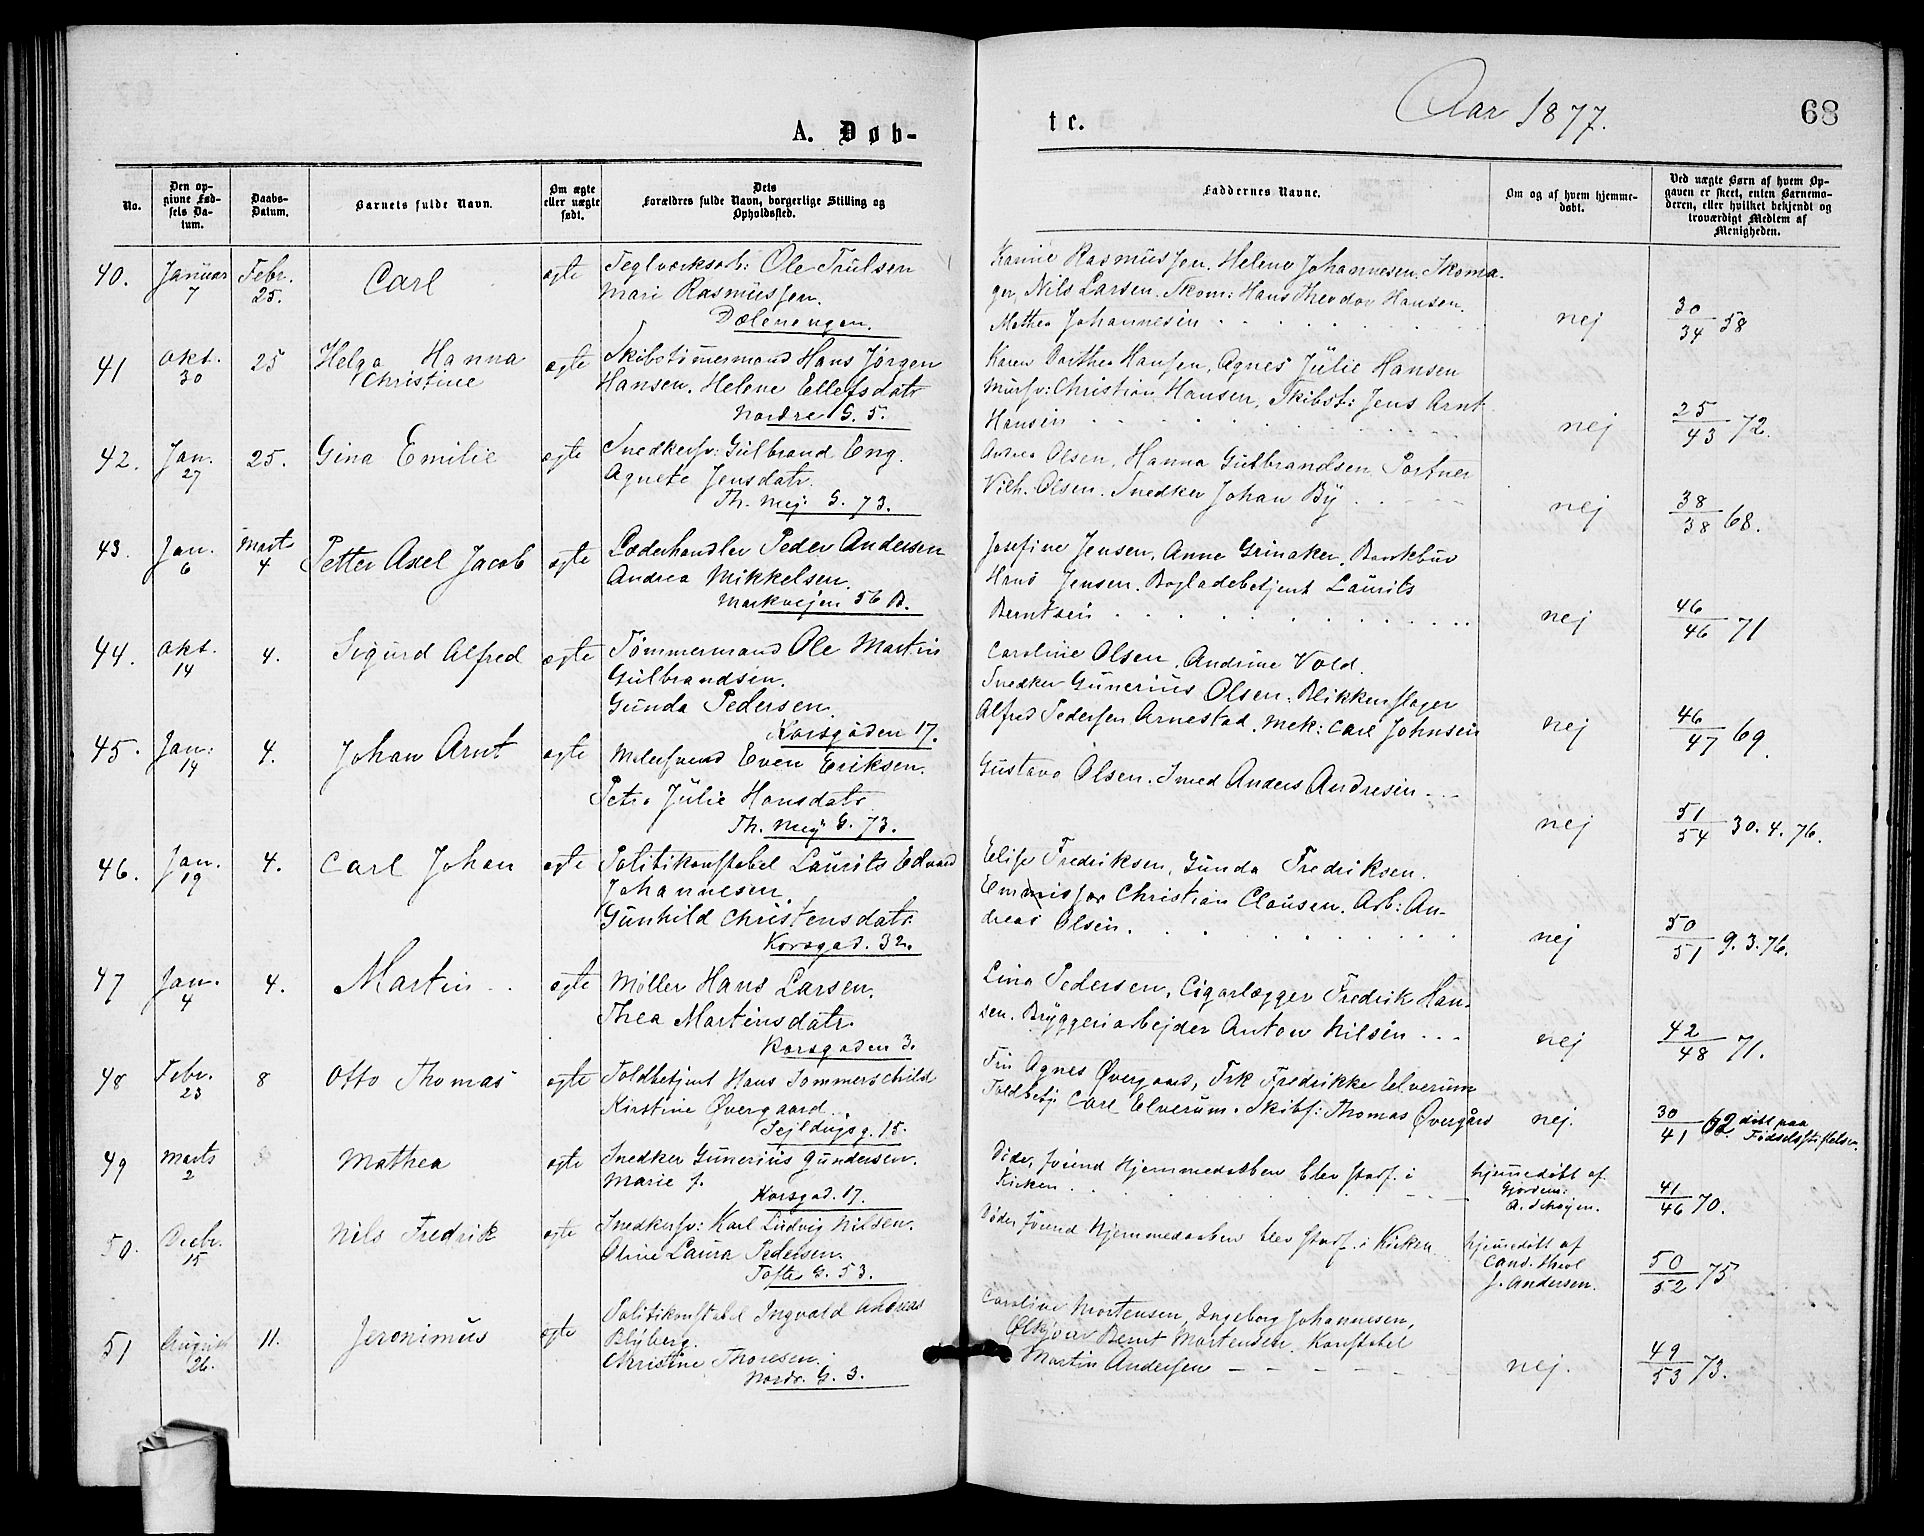 A. Døb-
tc.
Aar 1877.
68
No.
Den op-
givne Fød-
sels Da-
tum.
Daabs-
Datum.
Barnets fulde Navn.
Om ægte
eller uægte
født.
Dets
Forældres fulde Navn, borgerlige Stilling og
Opholdssted.
Faddernes Navne.
Om og af hvem hjemme-
døbt.
Ved uægte Børn af hvem Op-
gaven er skeet, enten Barnemo-
deren, eller hvilket bekjendt og
troværdigt Medlem af
Menigheden.
40. Januar 7 Febr. 25. Carl ægte
Teglværksarb: Ole Trulsen
Mari Rasmussen.
Dælenengen.
Rasmussen. Helene Johannesen. Skoma-
ger, Nils Larsen. Skom: Hans Theodor Hansen.
Mathea Johannesen
nej
30/34 58
41 Okt. 30 25 Helga Hanna
Christine
ægte
Skibstømmermand Hans Jørgen
Hansen. Helene Ellefsdatr
Nordre G. 5.
Karen Dorthea Hansen, Agnes Julie Hansen
Mursv: Christian Hansen, Skibst: Jens Arnt
Hansen
nej
25/43 72.
42. Jan. 27 25. Gina Emilie ægte
Snedkersv: Gulbrand Eng.
Agnete Jensdatr.
Th. Mey: G. 73.
Andrea Olsen, Hanna Gulbrandsen Portner
Vilh. Olsen. Snedker Johan By
nej
38/38 68.
43. Jan. 6 Marts 4 Petter Axel Jacob ægte
Læderhandler Peder Andersen
Andrea Mikkelsen.
Markvejen 56 B.
Josefine Jensen, Anna Grinaker, Bankbud
Hans Jensen. Bogladebetjent Laurits
Berntsen
nej
46/46 71
44. Okt. 14 4. Sigurd Alfred ægte
Tømmermand Ole Martin
Gulbrandsen.
Gunda Pedersen.
Korsgaden 17.
Caroline Olsen, Andrine Vold.
Snedker Gunerius Olsen. Blikkenslager
Alfred Pedersen Arnestad. Mek: Carl Johnsen
nej
46/47 69.
45. Jan: 14 4. Johan Arnt ægte
Even Eriksen.
Petra Julie Hansdatr
Th. Mey: G. 73.
Gustava Olsen. Smed Anders Andresen
nej
51/54 30.4.76.
46. Jan. 19 4. Carl Johan ægte
Politikonstabel Laurits Edvard
Johannesen.
Gunhild Christensdatr.
Korsgad. 32.
Elise Fredriksen, Gunda Fredriksen.
Emmissær Christian Clausen. Arb: An-
dreas Olsen.
nej
50/51 9.3.76.
47 Jan. 4 4. Martin ægte
Møller Hans Larsen.
Thea Martinsdatr.
Korsgaden 3.
Lina Pedersen, Cigarlægger Fredrik Han-
sen. Bryggeriarbejder Anton Nilsen
nej
42/48 71.
48 Febr. 23 8 Otto Thomas ægte
Toldbetjent Hans Sommerschild
Kirstine Øvergaard.
Sejldugsg. 15.
Fru Agnes Øvergaard, Frk Fredrikke Elverum
Toldbetj: Carl Elverum. Skibsf: Thomas Øvergård
nej.
30/41 62. døbt paa
Fødselsstiftelsen.
49 Marts 2 Mathea ægte
Snedker Gunerius Gundersen.
Marie f.
Korsgad. 17.
Døde, førend Hjemmedaaben blev stadf. i
Kirken
hjemedøbt af
Gjordem:
A. Skøien.
41/46 70.
50. Decbr. 15 Nils Fredrik ægte
Snedkersv: Karl Ludvig Nilsen.
Oline Laura Pedersen.
Tofte G. 53.
Døde, førend Hjemmedaaben blev stadf. i Kirken
hjemedøbt af
Cand. theol
J. Andersen.
50/52 75
51 August 26. 11. Jeronimus ægte
Politikonstabel Ingvald Andreas
Blyberg.
Christine Thoresen.
Nordr. G. 3.
Caroline Mortensen, Ingeborg Johannesen,
Bernt Mortensen. Konstabel
Martin Andersen
nej.
49/53 73.